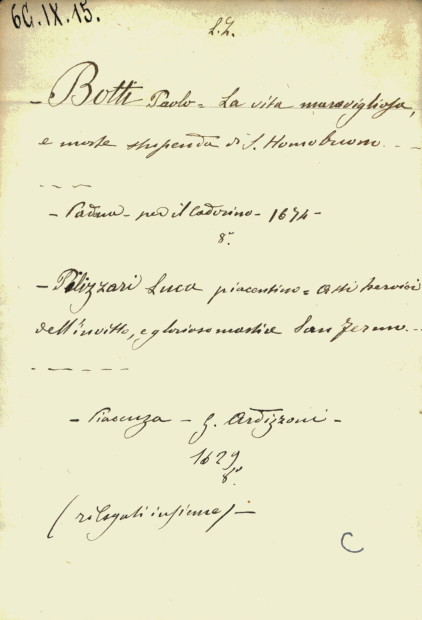 6G.IX.15.
L.Z.
- Botti Paolo = La vita maravigliosa,
e morte stupenda di S. Homobuono ---
---
- Padua - per il Cadorino - 1674 -
8°
- Pilizzari Luca piacentino = Atti heroici
dell'invitto, e glorioso martire San Fermo ---
------
- Piacenza - G. Ardizzoni -
1629
8°
(rilegati insieme) -
C